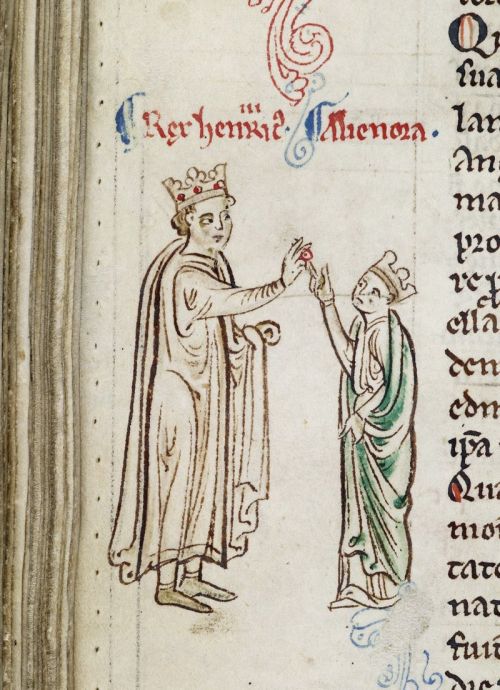 Rex henric᷒ iii. Alienora.
Qu
sua
lan
an
ma
pro
re p
ella
den
edm
ip̄a
Qua
mon
tato
nat
fuit
die